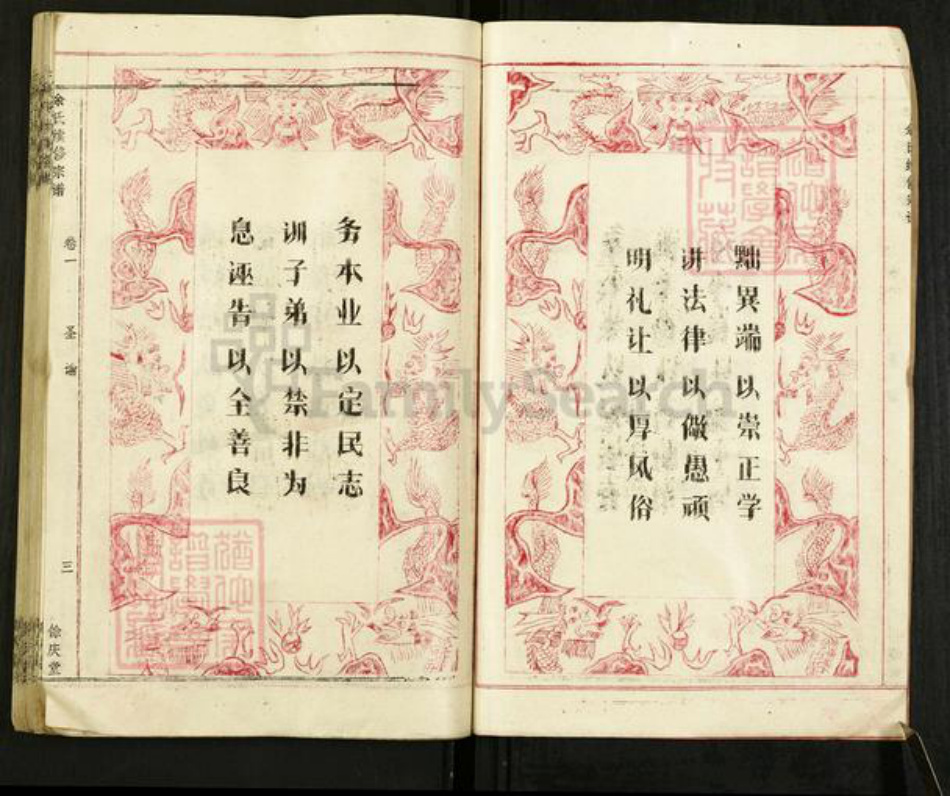 黜異端 以崇正学
讲法律 以儆愚顽
明礼让 以厚风俗
务本业 以定民志
训子弟 以禁非为
息诬告 以全善良
余氏续修宗谱
卷一
圣谕
三
馀庆堂
FamilySearch